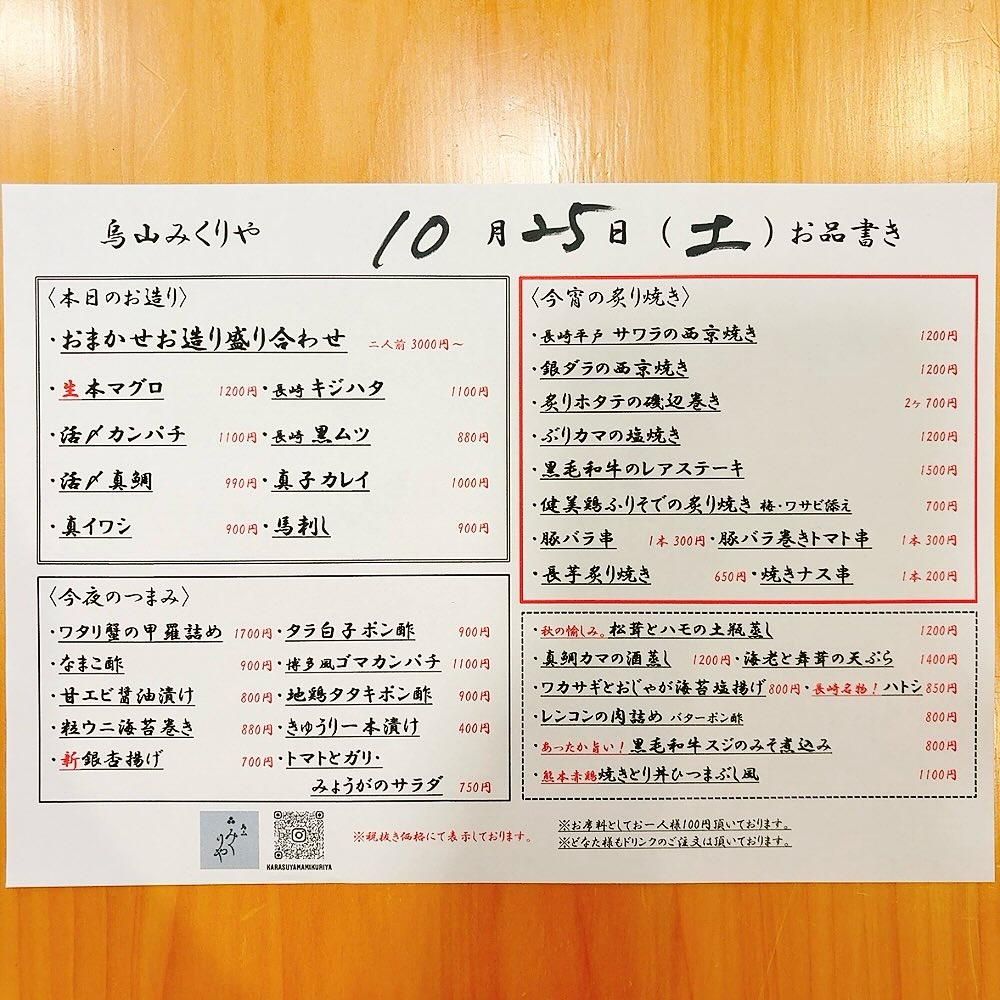 烏山みくりや 10月25日(土)お品書き
〈本日のお造り〉
・おまかせお造り盛り合わせ 二人前 3000円～
・生本マグロ 1200円・長崎 キジハタ 1100円
・活〆カンパチ 1100円・長崎 黒ムツ 880円
・活〆真鯛 990円・真子カレイ 1000円
・真イワシ 900円・馬刺し 900円
〈今夜のつまみ〉
・ワタリ蟹の甲羅詰め 1700円・タラ白子ポン酢 900円
・なまこ酢 900円・博多風ゴマカンパチ 1100円
・甘エビ醤油漬け 800円・地鶏タタキポン酢 900円
・粒ウニ海苔巻き 880円・きゅうり一本漬け 400円
・新銀杏揚げ 700円・トマトとガリ・
みょうがのサラダ 750円
〈今宵の炙り焼き〉
・長崎平戸 サワラの西京焼き 1200円
・銀ダラの西京焼き 1200円
・炙りホタテの磯辺巻き 2ヶ 700円
・ぶりカマの塩焼き 1200円
・黒毛和牛のレアステーキ 1500円
・健美鶏ふりそでの炙り焼き 梅・ワサビ添え 700円
・豚バラ串 1本 300円・豚バラ巻きトマト串 1本 300円
・長芋炙り焼き 650円・焼きナス串 1本 200円
・秋の愉しみ。松茸とハモの土瓶蒸し 1200円
・真鯛カマの酒蒸し 1200円・海老と舞茸の天ぷら 1400円
・ワカサギとおじゃが海苔塩揚げ 800円・長崎名物！ハトシ 850円
・レンコンの肉詰め バターポン酢 800円
・あったか旨い！黒毛和牛スジのみそ煮込み 800円
・熊本赤鶏焼きとり丼ひつまぶし風 1100円
烏山みくりや
KARASUYAMAMIKURIYA
※税抜き価格にて表示しております。
※お席料としてお一人様100円頂いております。
※どなた様もドリンクのご注文は頂いております。